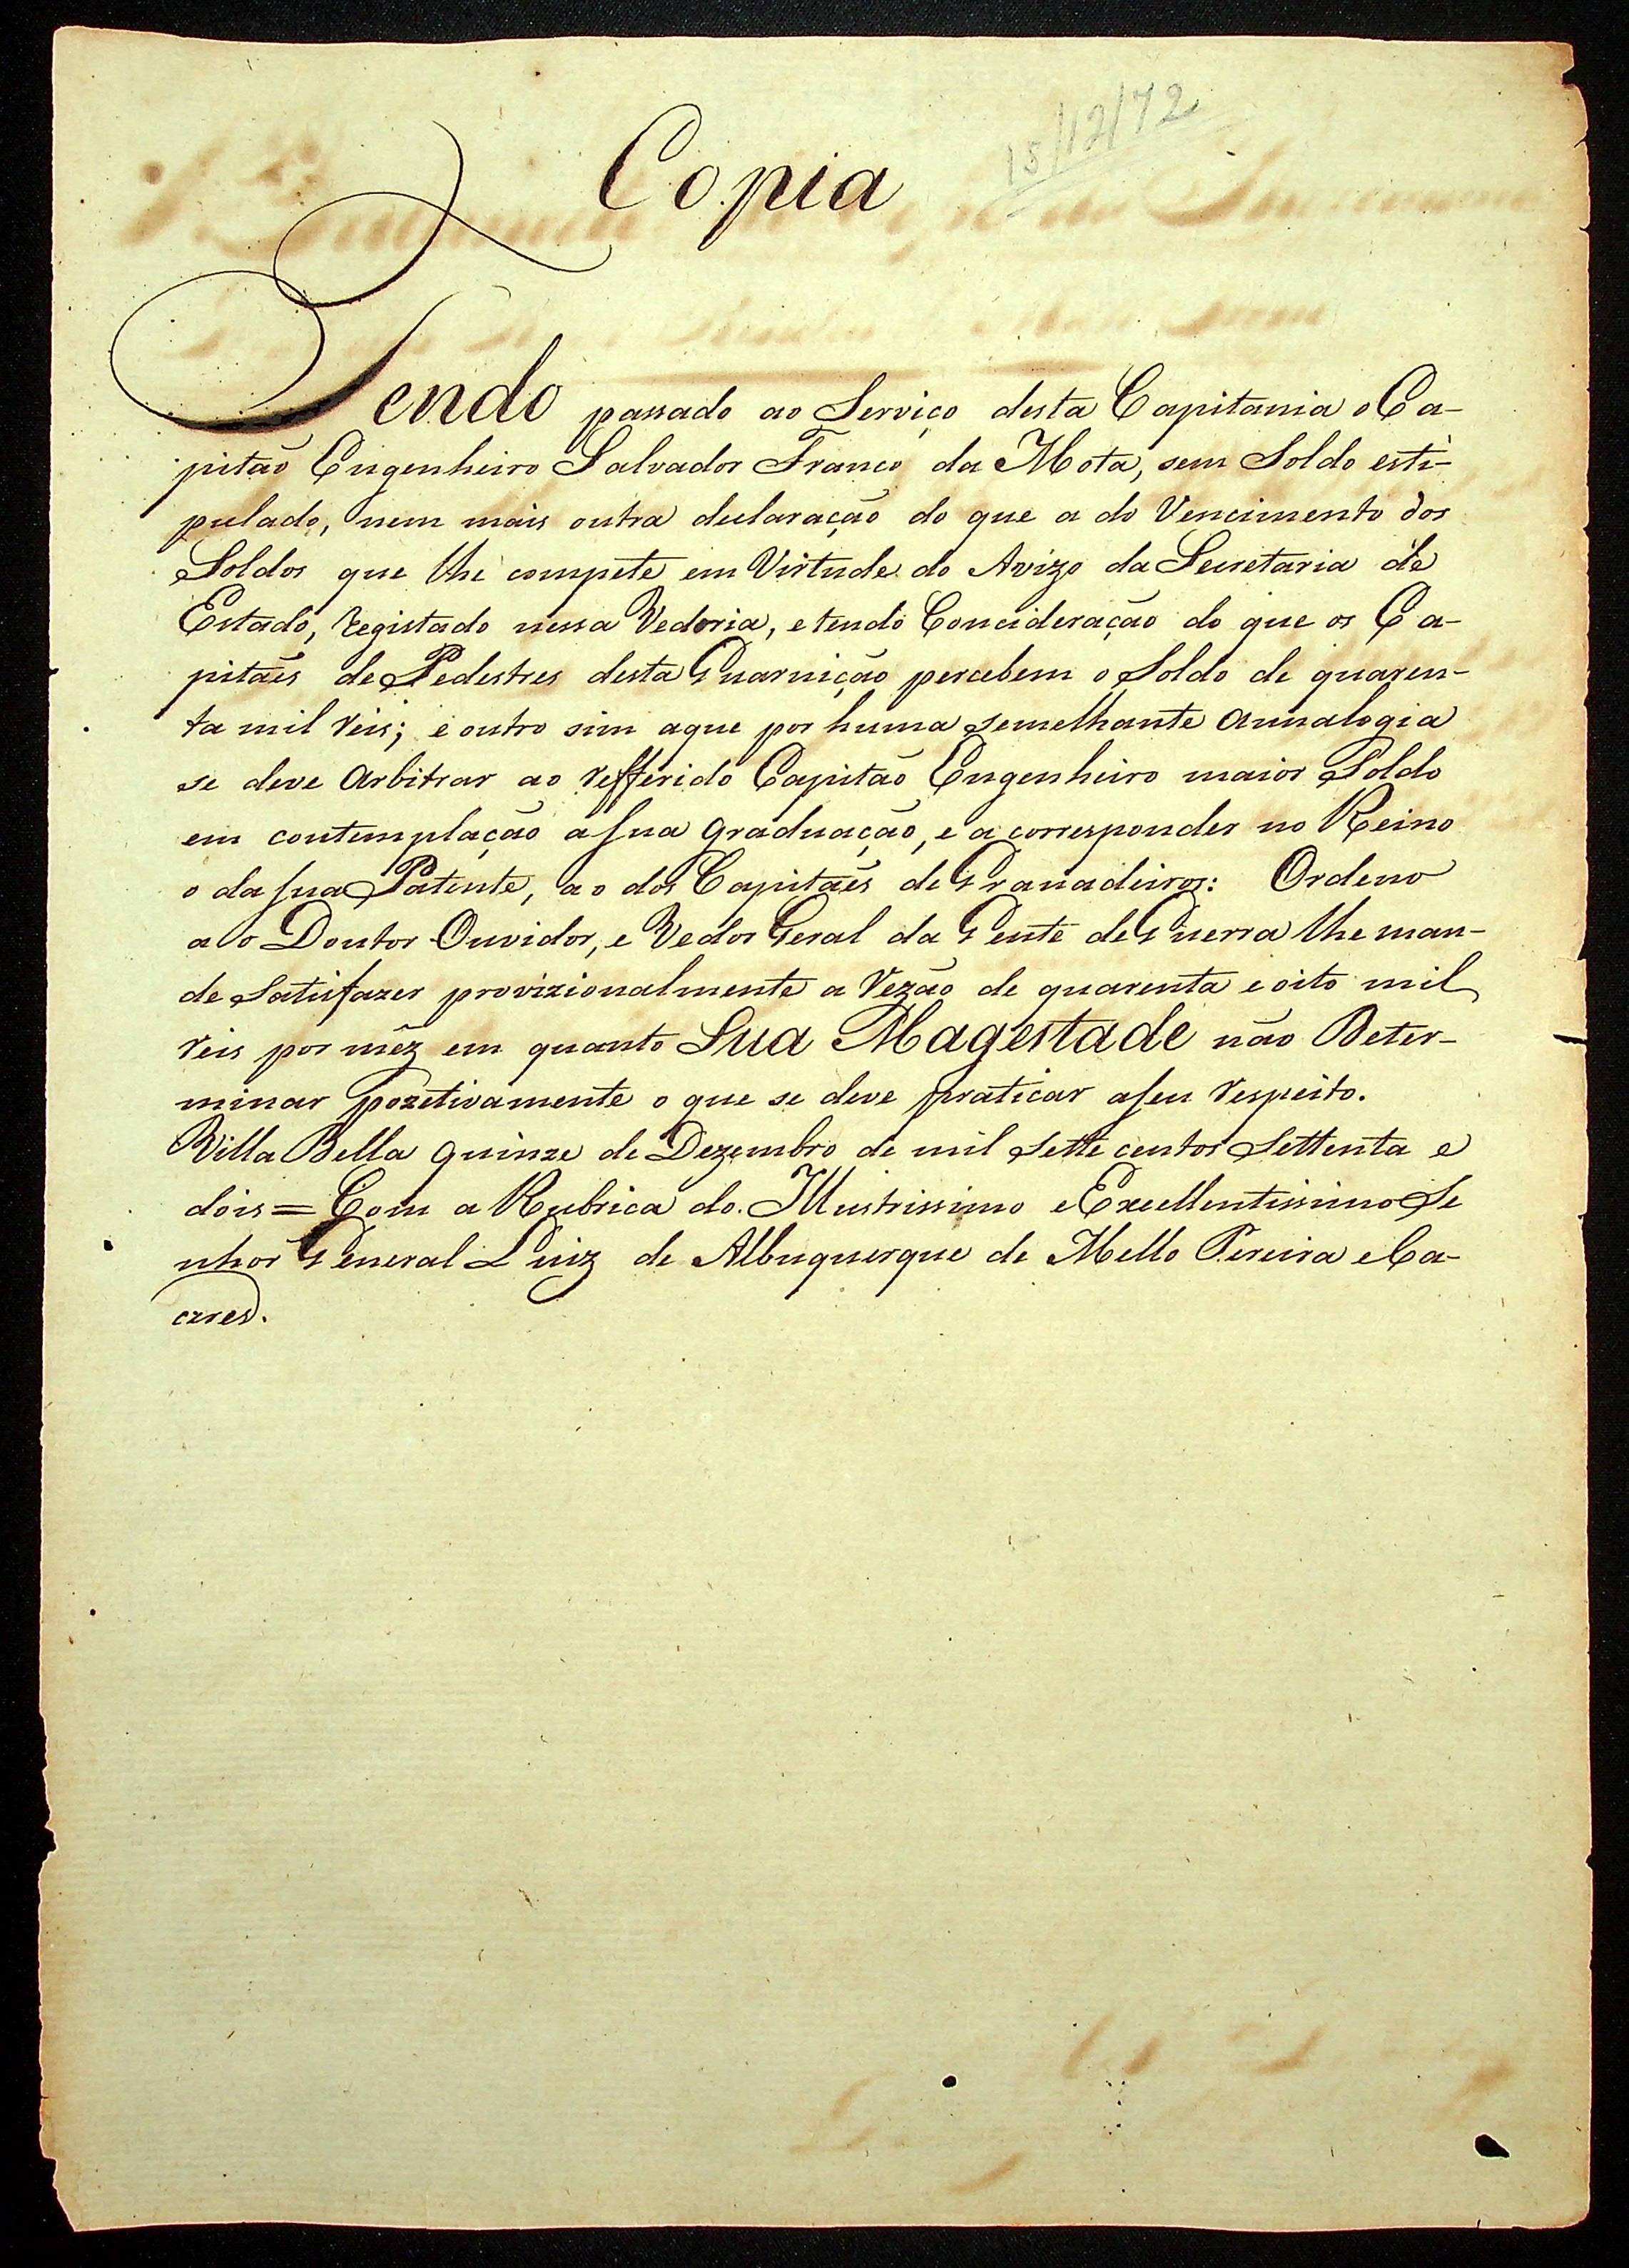 15/12/72
Copia
Tendo passado ao Serviço desta Capitania o Ca-
pitaõ Engenheiro Salvador Franco da Mota, sem Soldo esti-
pulado, nem mais outra declaração do que a do Vencimento dos
Soldos que lhe compete em Virtude do Avizo da Secretaria de
Estado, registado nessa Vedoria, e tendo Concideração do que os Ca-
pitaẽs de Pedestres desta Guarnição percebem o Soldo de quaren-
ta mil reis; e outro sim aque por huma semelhante Annalogia
se deve Arbitrar ao refferido Capitaõ Engenheiro maior Soldo
em contemplação a sua graduação, e a corresponder no Reino
o da sua Patente, ao dos Capitaẽs de Granadeiros: Ordeno
ao Doutor Ouvidor, e Vedor Geral da Gente de Guerra lhe man-
de Satisfazer provizionalmente a rezão de quarenta e oito mil
reis por mêz em quanto Sua Magestade não Deter-
minar pozetivamente o que se deve praticar a seu respeito.
Villa Bella quinze de Dezembro de mil sette centos Settenta e
dois = Com a Rubrica do Illustrissimo e Excellentissimo Se
nhor General Luiz de Albuquerque de Mello Pereira e Ca-
ceres.